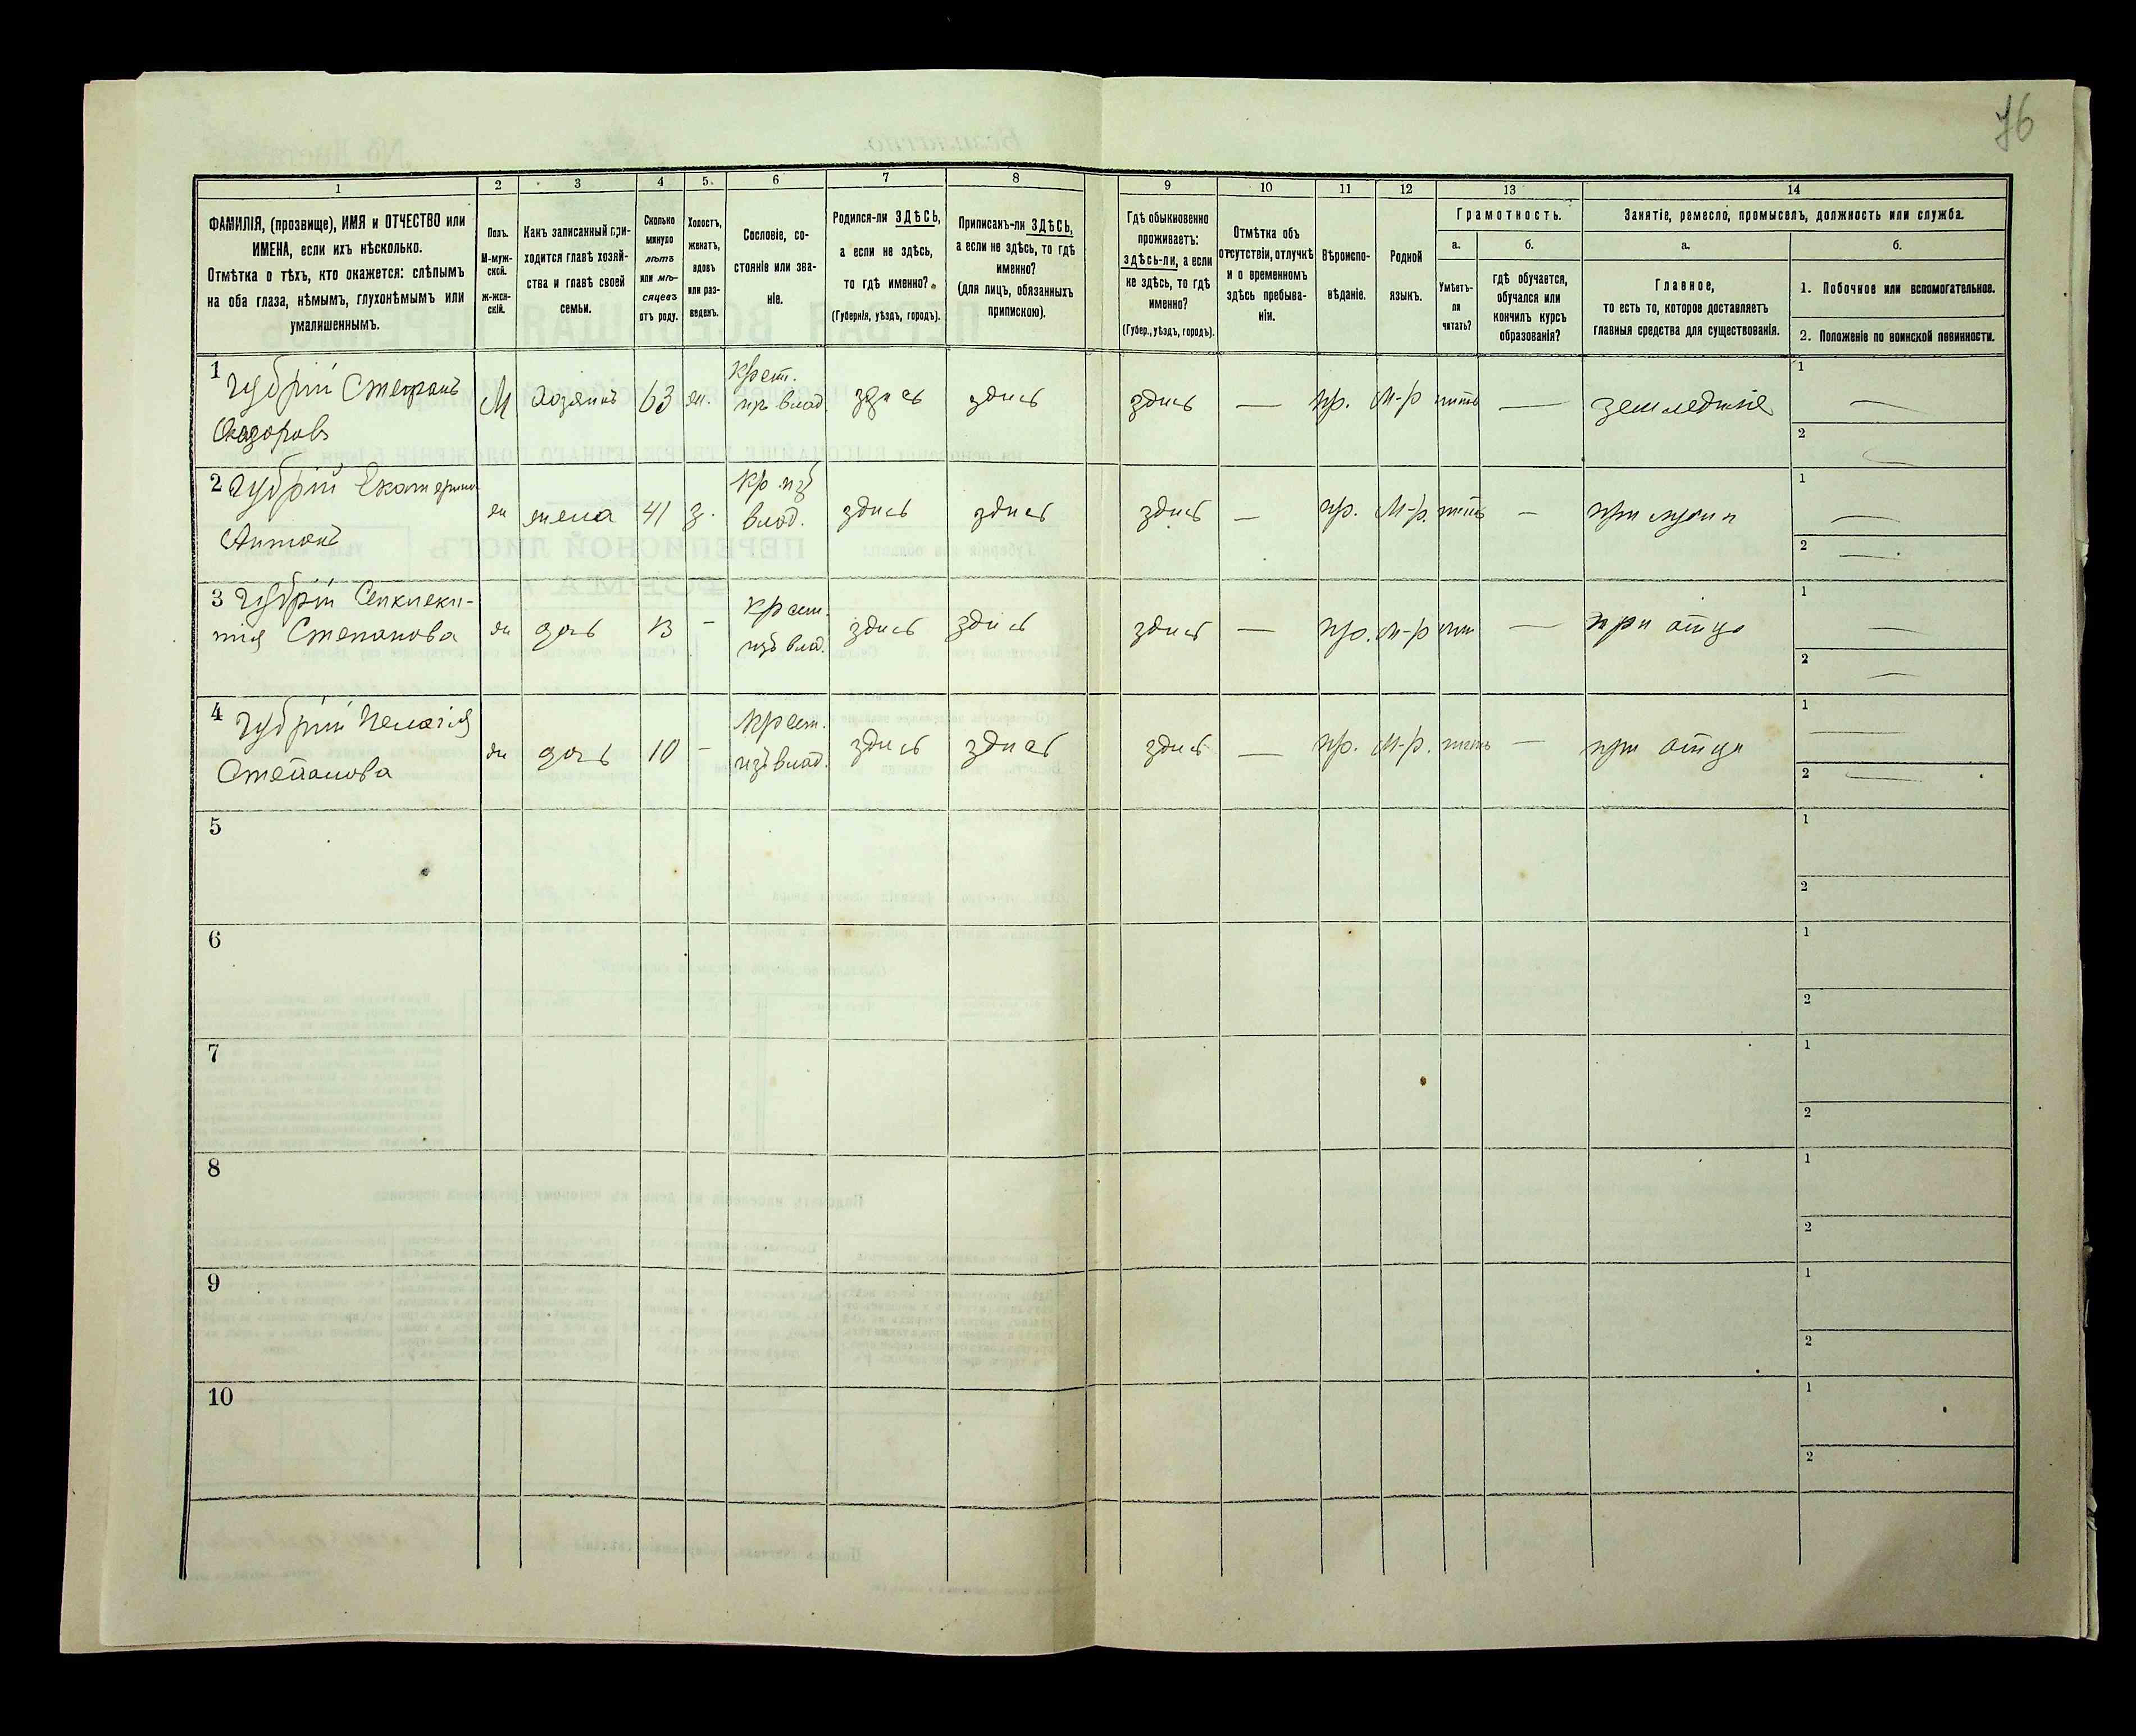 76
1 2 3 4 5. 6 7 8 9 10 11 12 13 14
ФАМИЛІЯ, (прозвище), ИМЯ и ОТЧЕСТВО или
ИМЕНА, если ихъ нѣсколько.
Отмѣтка о тѣхъ, кто окажется: слѣпымъ
на оба глаза, нѣмымъ, глухонѣмымъ или
умалишеннымъ.
Полъ.
М-муж-
ской.
ж-жен-
скій.
Какъ записанный при-
ходится главѣ хозяй-
ства и главѣ своей
семьи.
Сколько
минуло
лѣтъ
или мѣ-
сяцевъ
отъ роду.
Холостъ,
женатъ,
вдовъ
или раз-
веденъ.
Сословіе, со-
стояніе или зва-
ніе.
Родился-ли ЗДѢСЬ,
а если не здѣсь,
то гдѣ именно?
(Губернія, уѣздъ, городъ).
Приписанъ-ли ЗДѢСЬ,
а если не здѣсь, то гдѣ
именно?
(для лицъ, обязанныхъ
припискою).
Гдѣ обыкновенно
проживаетъ:
здѣсь-ли, а если
не здѣсь, то гдѣ
именно?
(Губер., уѣздъ, городъ).
Отмѣтка объ
отсутствіи, отлучкѣ
и о временномъ
здѣсь пребыва-
ніи.
Вѣроиспо-
вѣданіе.
Родной
языкъ.
Грамотность.
а.
Умѣетъ-
ли
читать?
б.
гдѣ обучается,
обучался или
кончилъ курсъ
образованія?
Занятіе, ремесло, промыселъ, должность или служба.
а.
Главное,
то есть то, которое доставляетъ
главныя средства для существованія.
б.
1. Побочное или вспомогательное.
2. Положеніе по воинской повинности.
1 Губрій Степанъ М хозяинъ 63 ж. крест. здись здись здись — пр. М-р нитъ — земледиліе 1 —
Федоровъ 2 —
2 Губрій Екатерина ж жена 41 з. кр. изъ влад. здись здись здись — пр. М-р. нитъ — при мужи 1 —
Антонъ 2 —
3 Губрій ж дочь 13 — крест. изъ влад. здись здись здись — пр. М-р нит — при отце 1 —
Степанова 2 —
4 Губрій Пелагія ж дочь 10 — крест. изъ влад. здись здись здись — пр. М-р. нитъ — при отце 1 —
Степанова 2 —
5 1
2
6 1
2
7 1
2
8 1
2
9 1
2
10 1
2